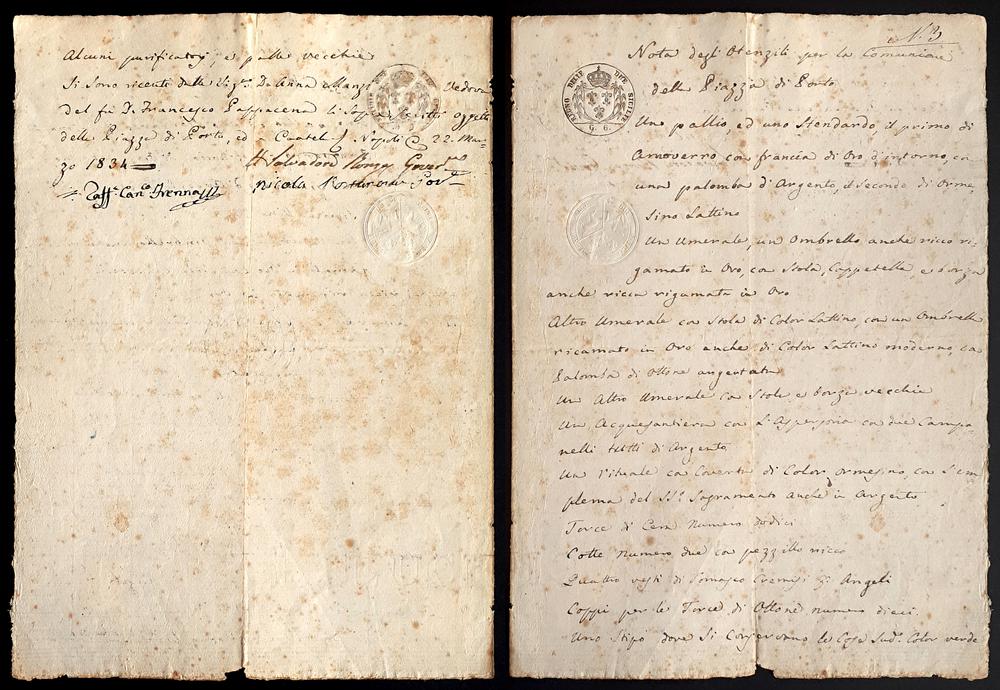 Alcuni purificatoj, e palle vecchie
Si sono ricevuti dalla Sig.ª D. Anna Manzi Vedova
del fu D. Francesco Pappacena li sopra scritti oggetti
della Piazza di Porto, ed a Cautel.ª Napoli 22 Mar=
zo 1834
Salvadore Governe
Nicola Gov.e
Raff.e Can.co
REGNO DELLE DUE SICILIE
G. G.
N. 3
Nota degli Utenzili per la Comunione
della Piazza di Porto
Un pallio, ed uno Stendardo, il primo di
Amoverro con francia di Oro d'intorno, con
una palomba d'Argento, il secondo di Orme,
sino Lattino
Un Umerale, un Ombrello anche ricco ri,
gamato in Oro, con Stola, Cappetella e borza
anche ricca rigamata in Oro
Altro Umerale con Stola di Color Lattino, con un Ombrello
ricamato in Oro anche di Color Lattino moderno, con
Palomba di Ottone argentata
Un Altro Umerale con Stola, e borza vecchie
Un Acquesantiera con l'Aspersorio con due Campa,
nelli tutti di Argento
Un rituale con Coverta di Color ormesino, con l'em
plema del SS.º Sagramento anche in Argento
Torce di Cera Numero dodici
Cotte Numero due con pezzillo ricco
Quattro vesti di Domasco Cremisi gli Angeli
Coppi per le Torce di Ottone numero dieci
Uno Stipo dove si conservano le cose Sud.e Color verde